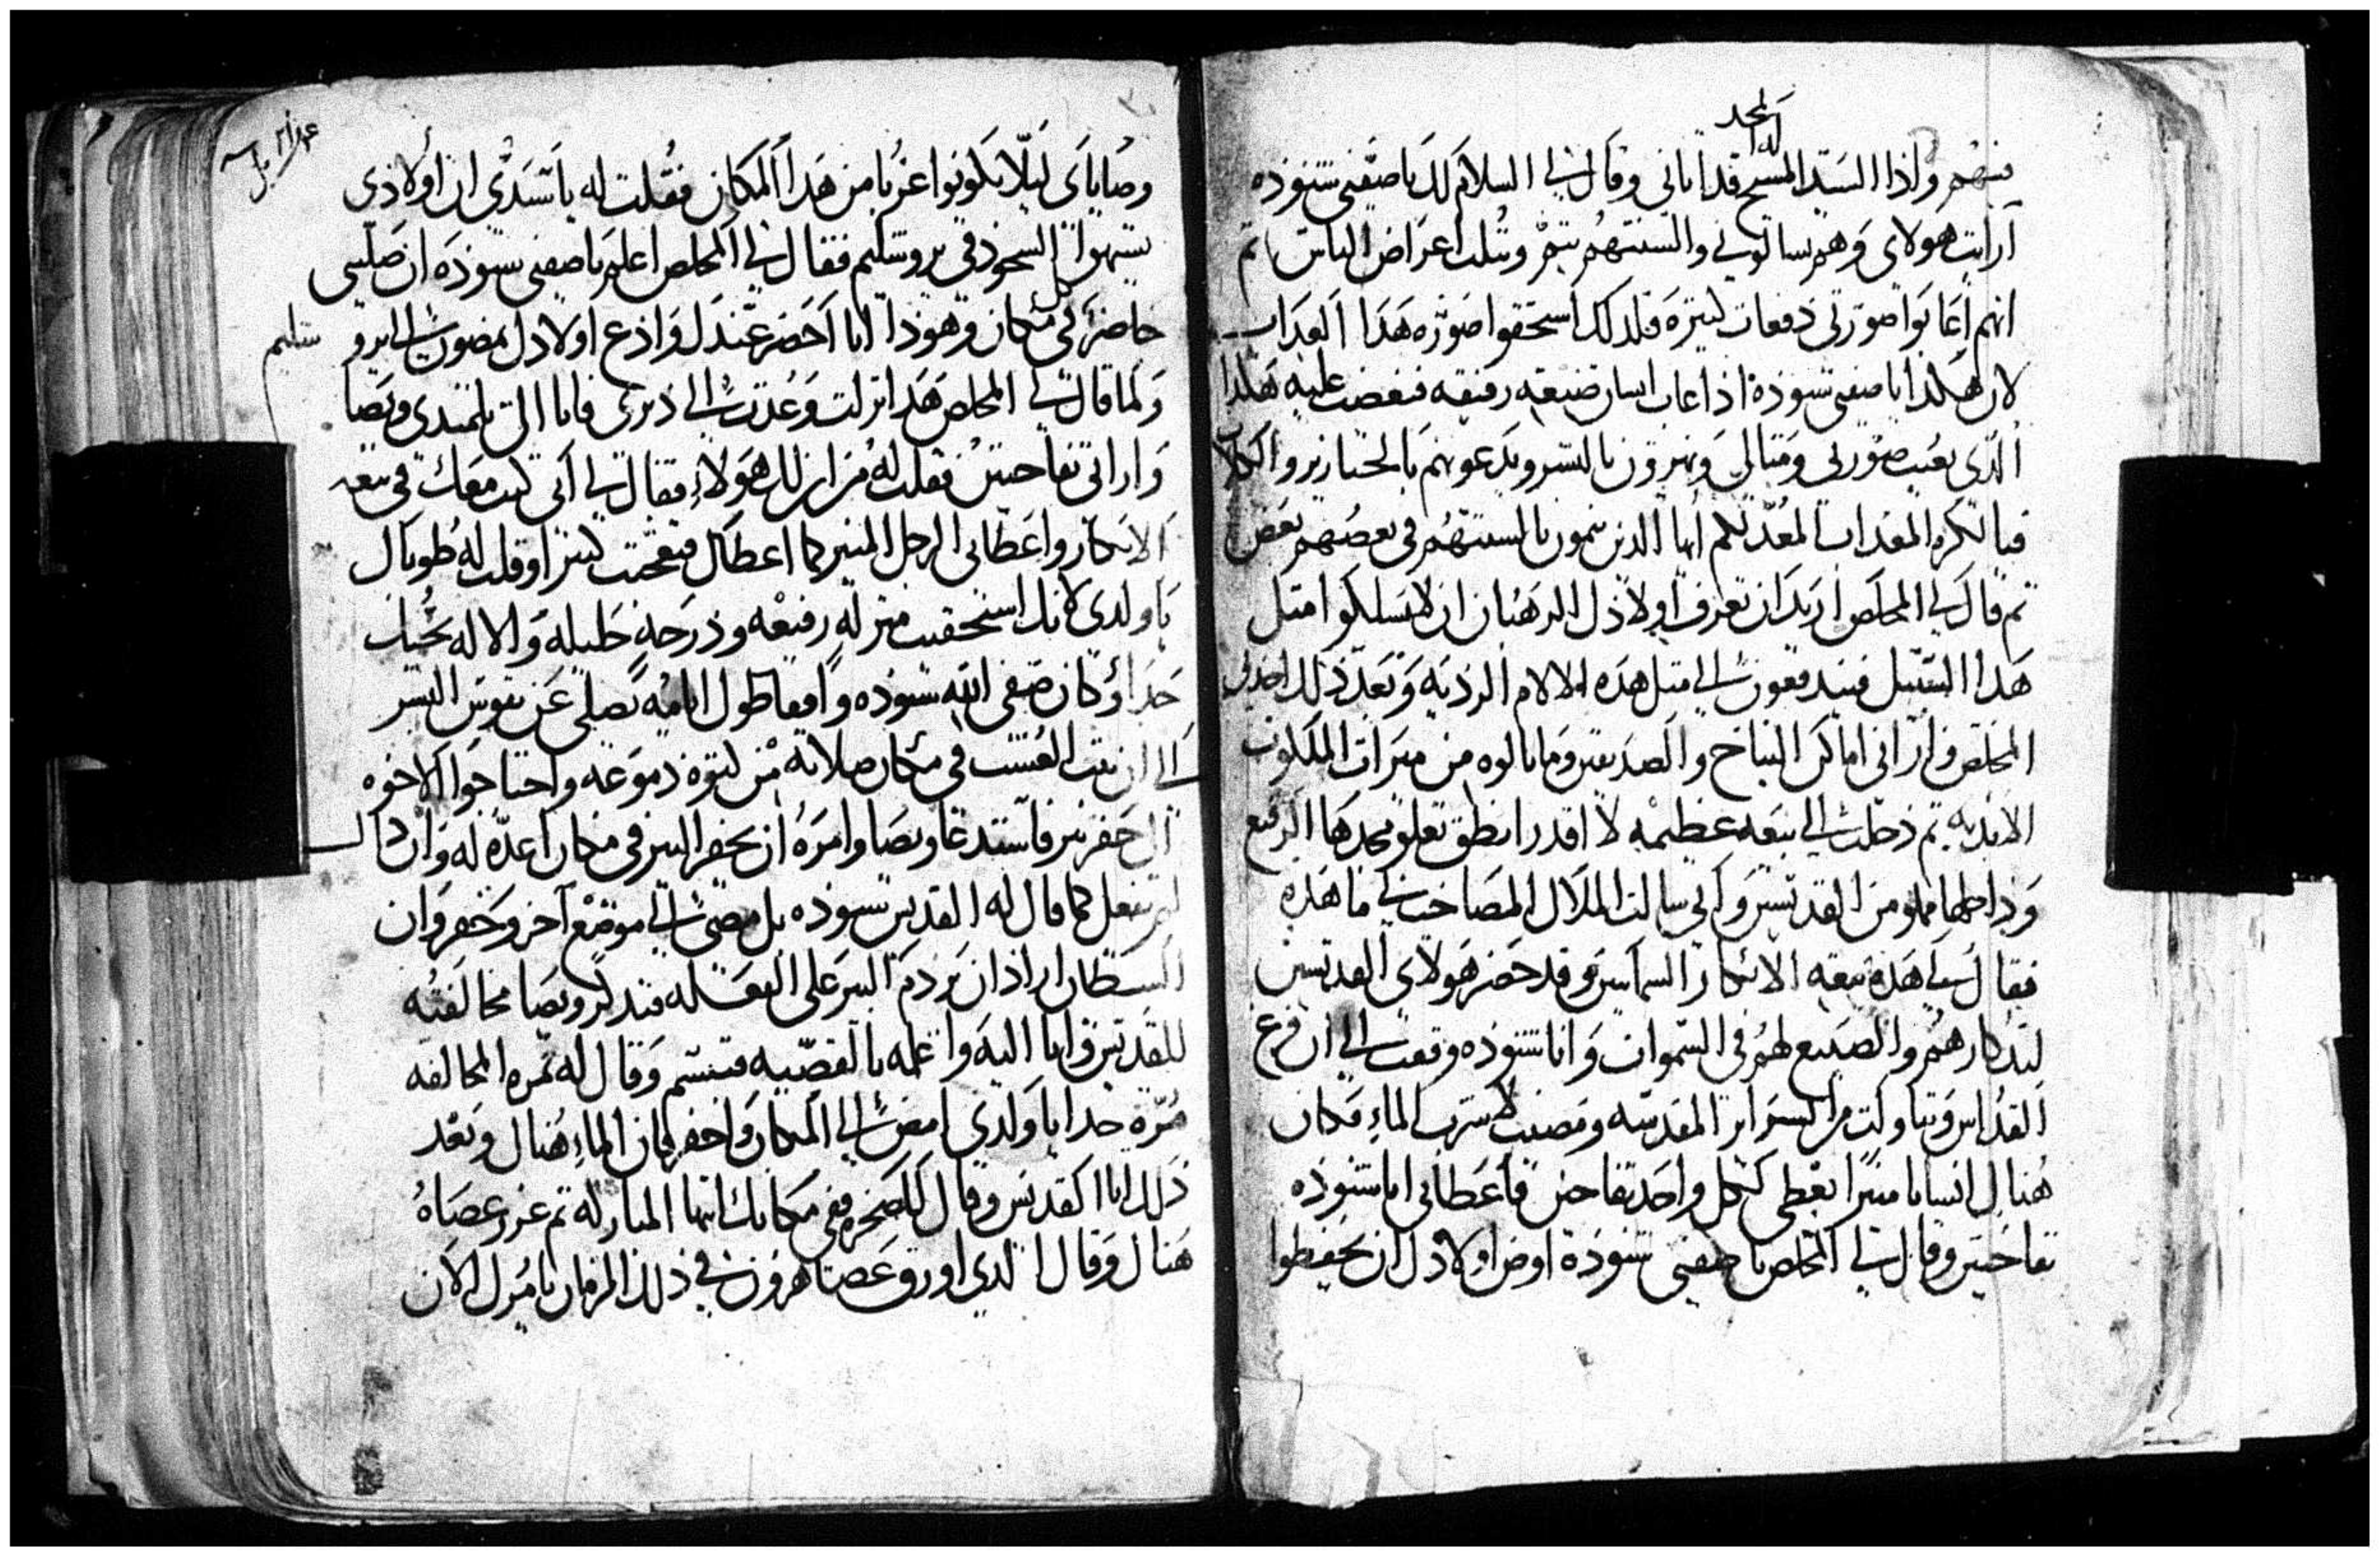 له المجد
منهم واذا السيد المسيح قد اتاني وقال لي السلام لك يا صفيي شنوده
ارايت هولاي وهم سالوني والسنتهم بتم وثلب اعراض الناس تم
انهم اعابوا صورتي دفعات كتيره فلدلك استحقوا صوره هدا العداب
لان هكدا يا صفيي شنوده ادا عاب انسان صنعه رفيقه فيغضب عليه هكدا
الدي يعيب صورتي ومتالي ويهزون بالبشر ويدعونهم بالخنازير والكلاب
فيا لكره العداب المعد لكم ايها الدين ينمون بالسنتهم في بعضهم بعض
تم قال لي المخلص اريد ان تعرف اولادك الرهبان ان لا يسلكوا متل
هدا السبيل فيندفعون الي متل هده الالام الرديه وبعد دلك اخدني
المخلص واراني اماكن النياح والصديقين وما نالوه من ميرات الملكوت
الابديه تم دخلت الي بيعه عظيمه لا اقدر انطق بعلو مجدها الرفيع
وداخلها مملو من القديسين واني سالت الملاك المصاحب لي ما هده
فقال لي هده بيعه الابكار السماسين وقد حضر هولاي القديسين
لتدكارهم والصنيع لهم في السموات وانا شنوده وقفت الي ان فرغ
القداس وتناولت من السراير المقدسه ومضيت لاشرب الماء فكان
هناك انسانا منيرا يعطي لكل واحد تفاحتين فاعطاني انا شنوده
تفاحتين وقال لي المخلص يا صفيي شنوده اوص اولادك ان يحفظوا
وصاياي ليلا يكونوا غربا من هدا المكان فقلت له يا سيدي ان اولادي
يشتهوا السجود في يروشليم فقال لي المخلص اعلم يا صفيي شنوده ان صليبي
حاضر في كل مكان وهودا انا احضر عندك وادع اولادك يمضون الي يرو شليم
ولما قال لي المخلص هدا نزلت وعدت الي ديري فاتا الي تلميدي ويصا
واراني تفاحتين فقلت له من اين لك هولاء فقال لي اني كنت معك في بيعه
الابكار واعطاني الرجل المنير كما اعطاك فتعجبت كتيرا وقلت له طوباك
يا ولدي لانك استحقيت منزله رفيعه ودرجه جليله والاله يحبك
جدا وكان صفي الله شنوده واقفا طول ايامه يصلي عن نفوس البشر
الي ان نبت العشب في مكان صلاته من كتره دموعه واحتاجوا الاخوه
الي حفر بير فاستدعا ويصا وامره ان يحفر البير في مكان اعده له وان داك
لم يفعل كما قال له القديس شنوده بل مضي الي موضع اخر وحفر وان
الشيطان اراد ان يردم البير علي الفعله فتدكر ويصا مخالفته
للقديس واتا اليه واعلمه بالقضيه فتبسم وقال له تمره المخالفه
مره جدا يا ولدي امض الي المكان واحفر فان الماء هناك وبعد
دلك اتا القديس وقال للصخره قفي مكانك ايتها المباركه تم غرز عصاه
هناك وقال الدي اورق عصا هرون في دلك الزمان يامرك الان